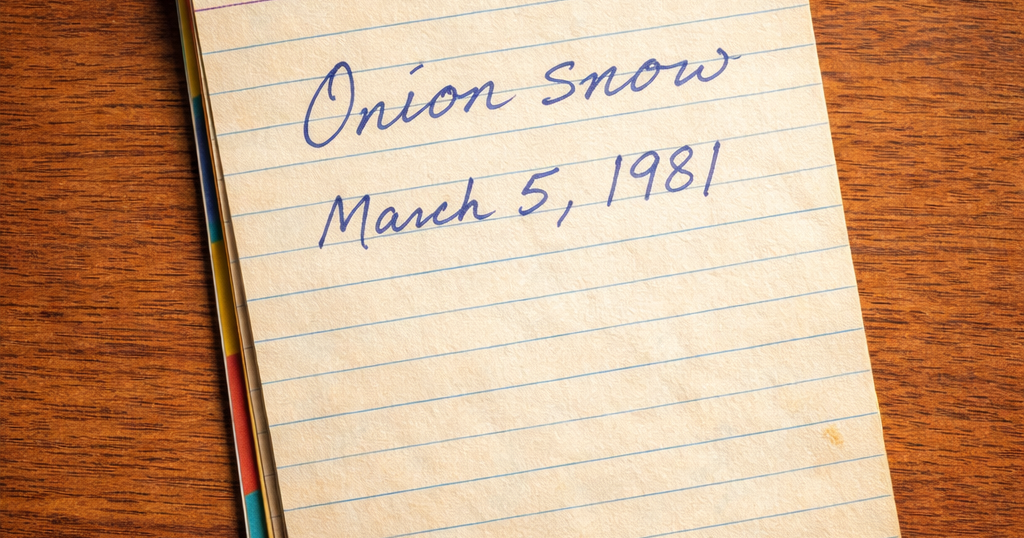 Onion snow
March 5, 1981